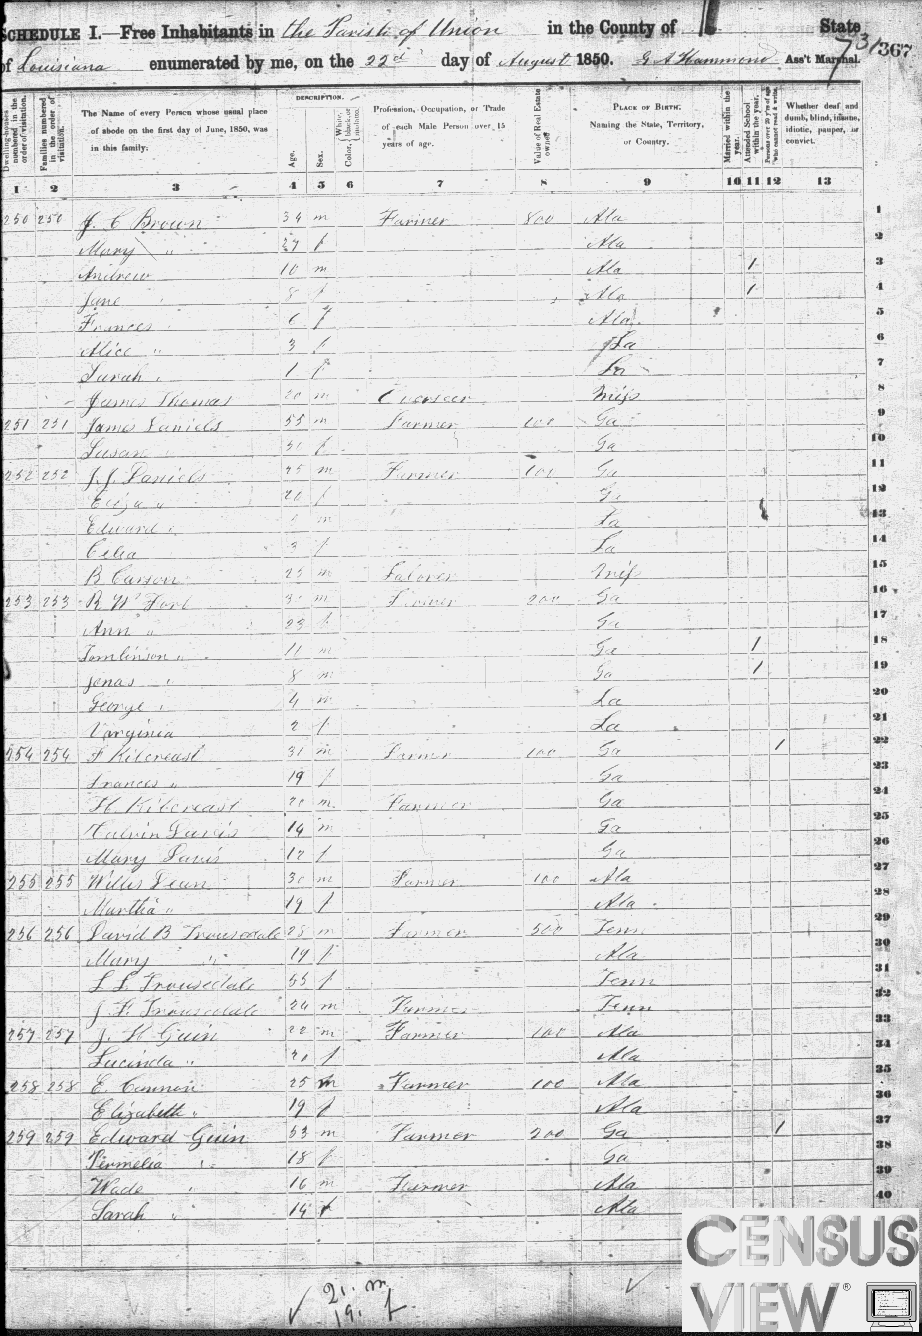 SCHEDULE I.—Free Inhabitants in the Parish of Union in the County of State
of Louisiana enumerated by me, on the 22d day of August 1850. G A Hammond Ass't Marshal.
731 367
Dwelling-houses numbered in the order of visitation.
Families numbered in the order of visitation.
The Name of every Person whose usual place of abode on the first day of June, 1850, was in this family.
DESCRIPTION.
Age.
Sex.
Color, White, black, or mulatto.
Profession, Occupation, or Trade of each Male Person over 15 years of age.
Value of Real Estate owned.
PLACE OF BIRTH. Naming the State, Territory, or Country.
Married within the year.
Attended School within the year.
Persons over 20 y'rs of age who cannot read & write.
Whether deaf and dumb, blind, insane, idiotic, pauper, or convict.
1 2 3 4 5 6 7 8 9 10 11 12 13
250 250 J. C Brown 34 m Farmer 800 Ala 1
Mary " 27 f Ala 2
Andrew 10 m Ala 1 3
Jane " 8 f Ala 1 4
Frances " 6 f Ala 5
Alice " 3 f La 6
Sarah " 1 f La 7
James Thomas 20 m Overseer Miss 8
251 251 James Daniels 55 m Farmer 100 Ga 9
Susan " 50 f Ga 10
252 252 J. J. Daniels 25 m Farmer 100 Ga 11
Eliza " 20 f Ga 12
Edward " m La 13
Celia 3 f La 14
B Carson 25 m Laborer Miss 15
253 253 R W Fort m Farmer 200 Ga 16
Ann " 23 f Ga 17
Tomlinson " 11 m Ga 1 18
Jonas " 8 m Ga 1 19
George " 4 m La 20
Virginia 2 f La 21
254 254 F Kilcreast 31 m Farmer 100 Ga 1 22
Frances " 19 f Ga 23
H. Kilcreast 20 m Farmer Ga 24
Calvin Davis 14 m Ga 25
Mary Davis 12 f Ga 26
255 255 Willis Dean 30 m Farmer 100 Ala 27
Martha " 19 f Ala 28
256 256 David B Trousedale 28 m Farmer 500 Tenn 29
Mary " 19 f Ala 30
L L Trousedale 55 f Tenn 31
J. F. Trousedale 24 m Farmer Tenn 32
257 257 J. H Guin 22 m Farmer 100 Ala 33
Lucinda " 20 f Ala 34
258 258 E. Cannon 25 m Farmer 100 Ala 35
Elizabeth " 19 f Ala 36
259 259 Edward Guin 53 m Farmer 200 Ga 1 37
Permelia " 18 f Ga 38
Wade " 16 m Farmer Ala 39
Sarah " 14 f Ala 40
21. m
19. f
CENSUS
VIEW ®